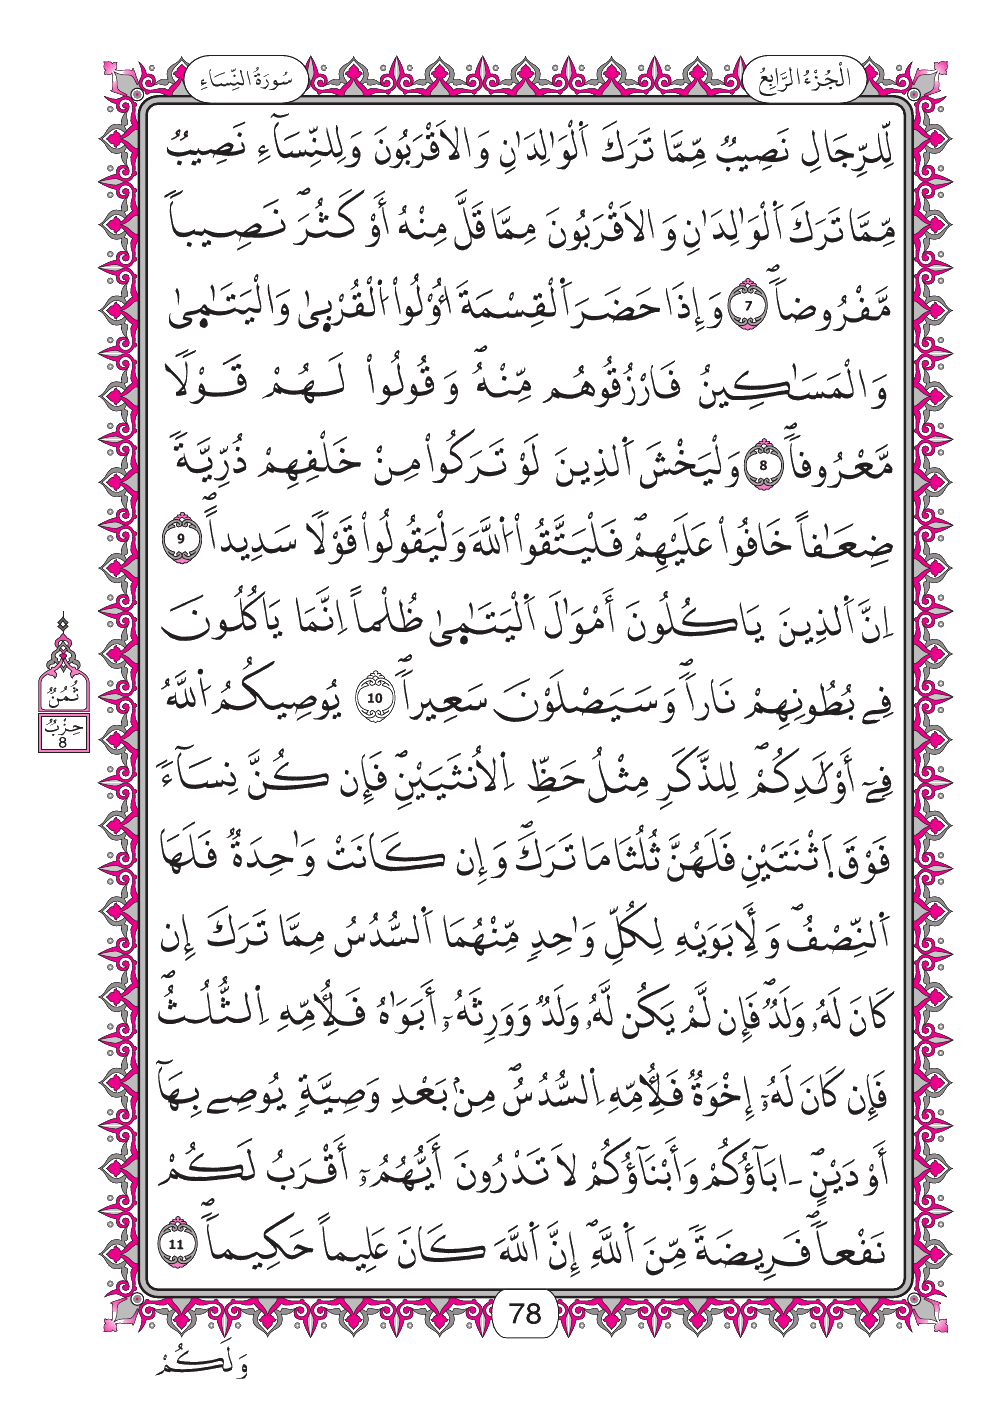 اَلْجُزْءُ الرَّابِعُ
سُورَةُ النِّسَاءِ
لِّلرِّجَالِ نَصِيبٌ مِّمَّا تَرَكَ اَ۬لْوَٰلِدَٰنِ وَالَاقْرَبُونَ وَلِلنِّسَآءِ نَصِيبٌ
مِّمَّا تَرَكَ اَ۬لْوَٰلِدَٰنِ وَالَاقْرَبُونَ مِمَّا قَلَّ مِنْهُ أَوْ كَثُرَۖ نَصِيباٗ
مَّفْرُوضاٗۖ 7 وَإِذَا حَضَرَ اَ۬لْقِسْمَةَ أُوْلُواْ اُ۬لْقُرْبىٰ وَالْيَتَٰمىٰ
وَالْمَسَٰكِينُ فَارْزُقُوهُم مِّنْهُۖ وَقُولُواْ لَهُمْ قَوْلاٗ
مَّعْرُوفاٗۖ 8 وَلْيَخْشَ اَ۬لذِينَ لَوْ تَرَكُواْ مِنْ خَلْفِهِمْ ذُرِّيَّةٗ
ضِعَٰفاً خَافُواْ عَلَيْهِمْۖ فَلْيَتَّقُواْ اُ۬للَّهَ وَلْيَقُولُواْ قَوْلاٗ سَدِيداًۖ 9
اِنَّ اَ۬لذِينَ يَاكُلُونَ أَمْوَٰلَ اَ۬لْيَتَٰمىٰ ظُلْماً اِنَّمَا يَاكُلُونَ
فِے بُطُونِهِمْ نَاراٗۖ وَسَيَصْلَوْنَ سَعِيراٗۖ 10 يُوصِيكُمُ اُ۬للَّهُ
فِےٓ أَوْلَٰدِكُمْۖ لِلذَّكَرِ مِثْلُ حَظِّ اِ۬لُانثَيَيْنِۖ فَإِن كُنَّ نِسَآءٗ
فَوْقَ اَ۪ثْنَتَيْنِ فَلَهُنَّ ثُلُثَا مَا تَرَكَۖ وَإِن كَانَتْ وَٰحِدَةٞ فَلَهَا
اَ۬لنِّصْفُۖ وَلِأَبَوَيْهِ لِكُلِّ وَٰحِدٖ مِّنْهُمَا اَ۬لسُّدُسُ مِمَّا تَرَكَ إِن
كَانَ لَهُۥ وَلَدٞۖ فَإِن لَّمْ يَكُن لَّهُۥ وَلَدٞ وَوَرِثَهُۥٓ أَبَوَٰهُ فَلِأُمِّهِ اِ۬لثُّلُثُۖ
فَإِن كَانَ لَهُۥٓ إِخْوَةٞ فَلِأُمِّهِ اِ۬لسُّدُسُۖ مِنۢ بَعْدِ وَصِيَّةٖ يُوصِے بِهَآ
أَوْ دَيْنٍۖ ـ ابَآؤُكُمْ وَأَبْنَآؤُكُمْ لَا تَدْرُونَ أَيُّهُمُۥٓ أَقْرَبُ لَكُمْ
نَفْعاٗۖ فَرِيضَةٗ مِّنَ اَ۬للَّهِۖ إِنَّ اَ۬للَّهَ كَانَ عَلِيماً حَكِيماٗۖ 11
ثُمُنٌ
حِزْبٌ
8
78
وَلَكُمْ